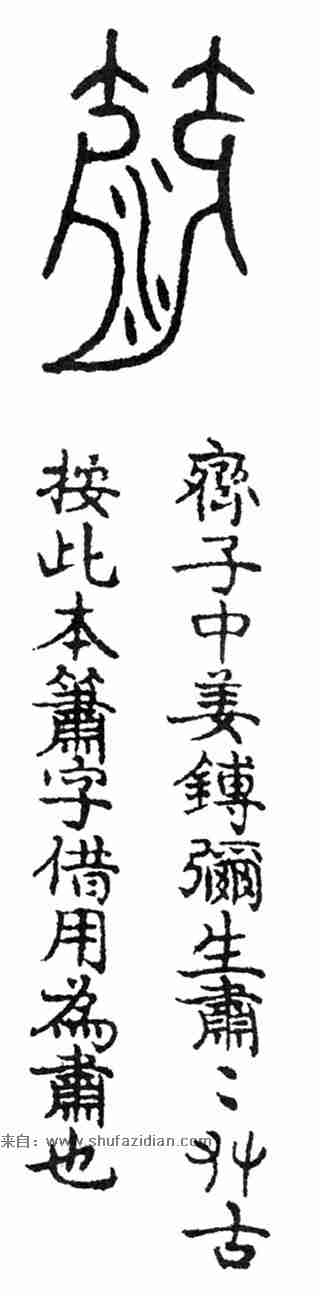 子中姜鎛彌生肅〻 古
按此本簫字借用為肅也
来自：www.shufazidian.com